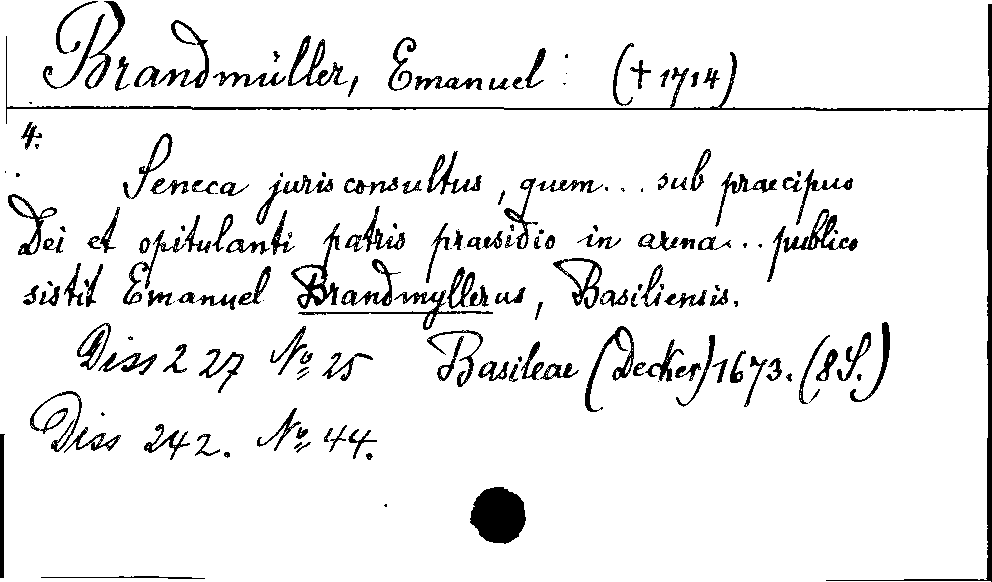 Brandmüller, Emanuel: († 1714)
4.
Seneca juris consultus, quem... sub praecipuo
Dei et opitulanti patris praesidio in arena... publico
sistit Emanuel Brandmyllerus, Basiliensis.
Diss 227 No 25 Basileae (Decker) 1673. (8 S.)
Diss 242. No 44.